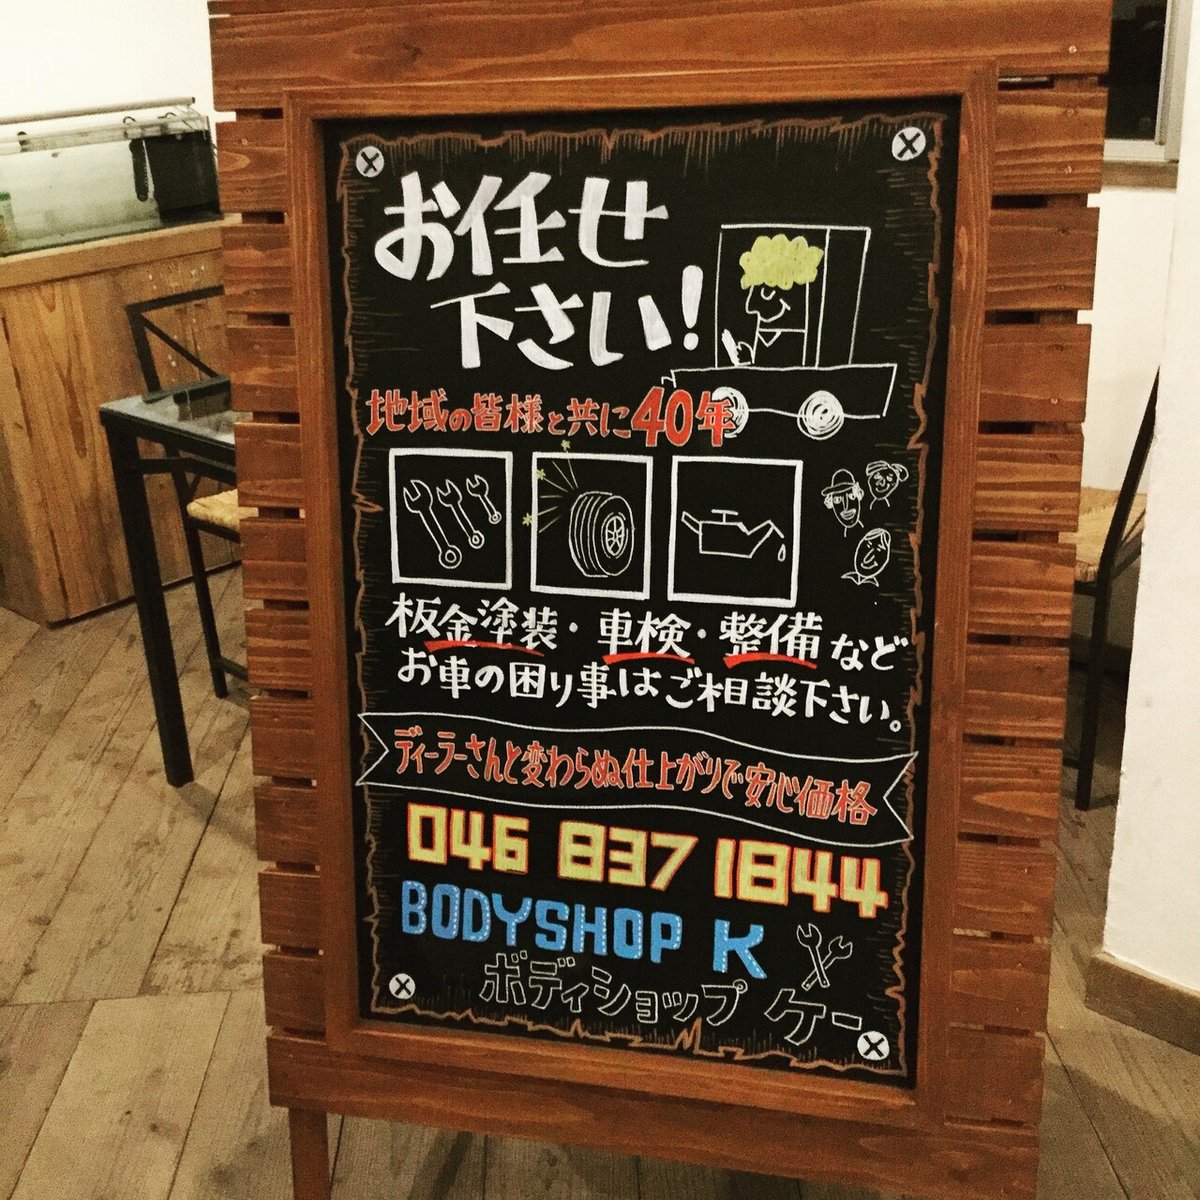 お任せ
下さい!
地域の皆様と共に40年
板金塗装・車検・整備など
お車の困り事はご相談下さい。
ディーラーさんと変わらぬ仕上がりで安心価格
046 837 1844
BODYSHOP K
ボディショップ ケー